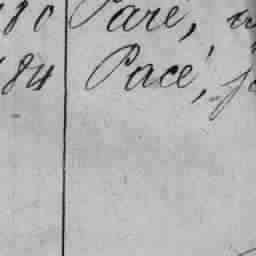 80 Pare,
84 Pace,